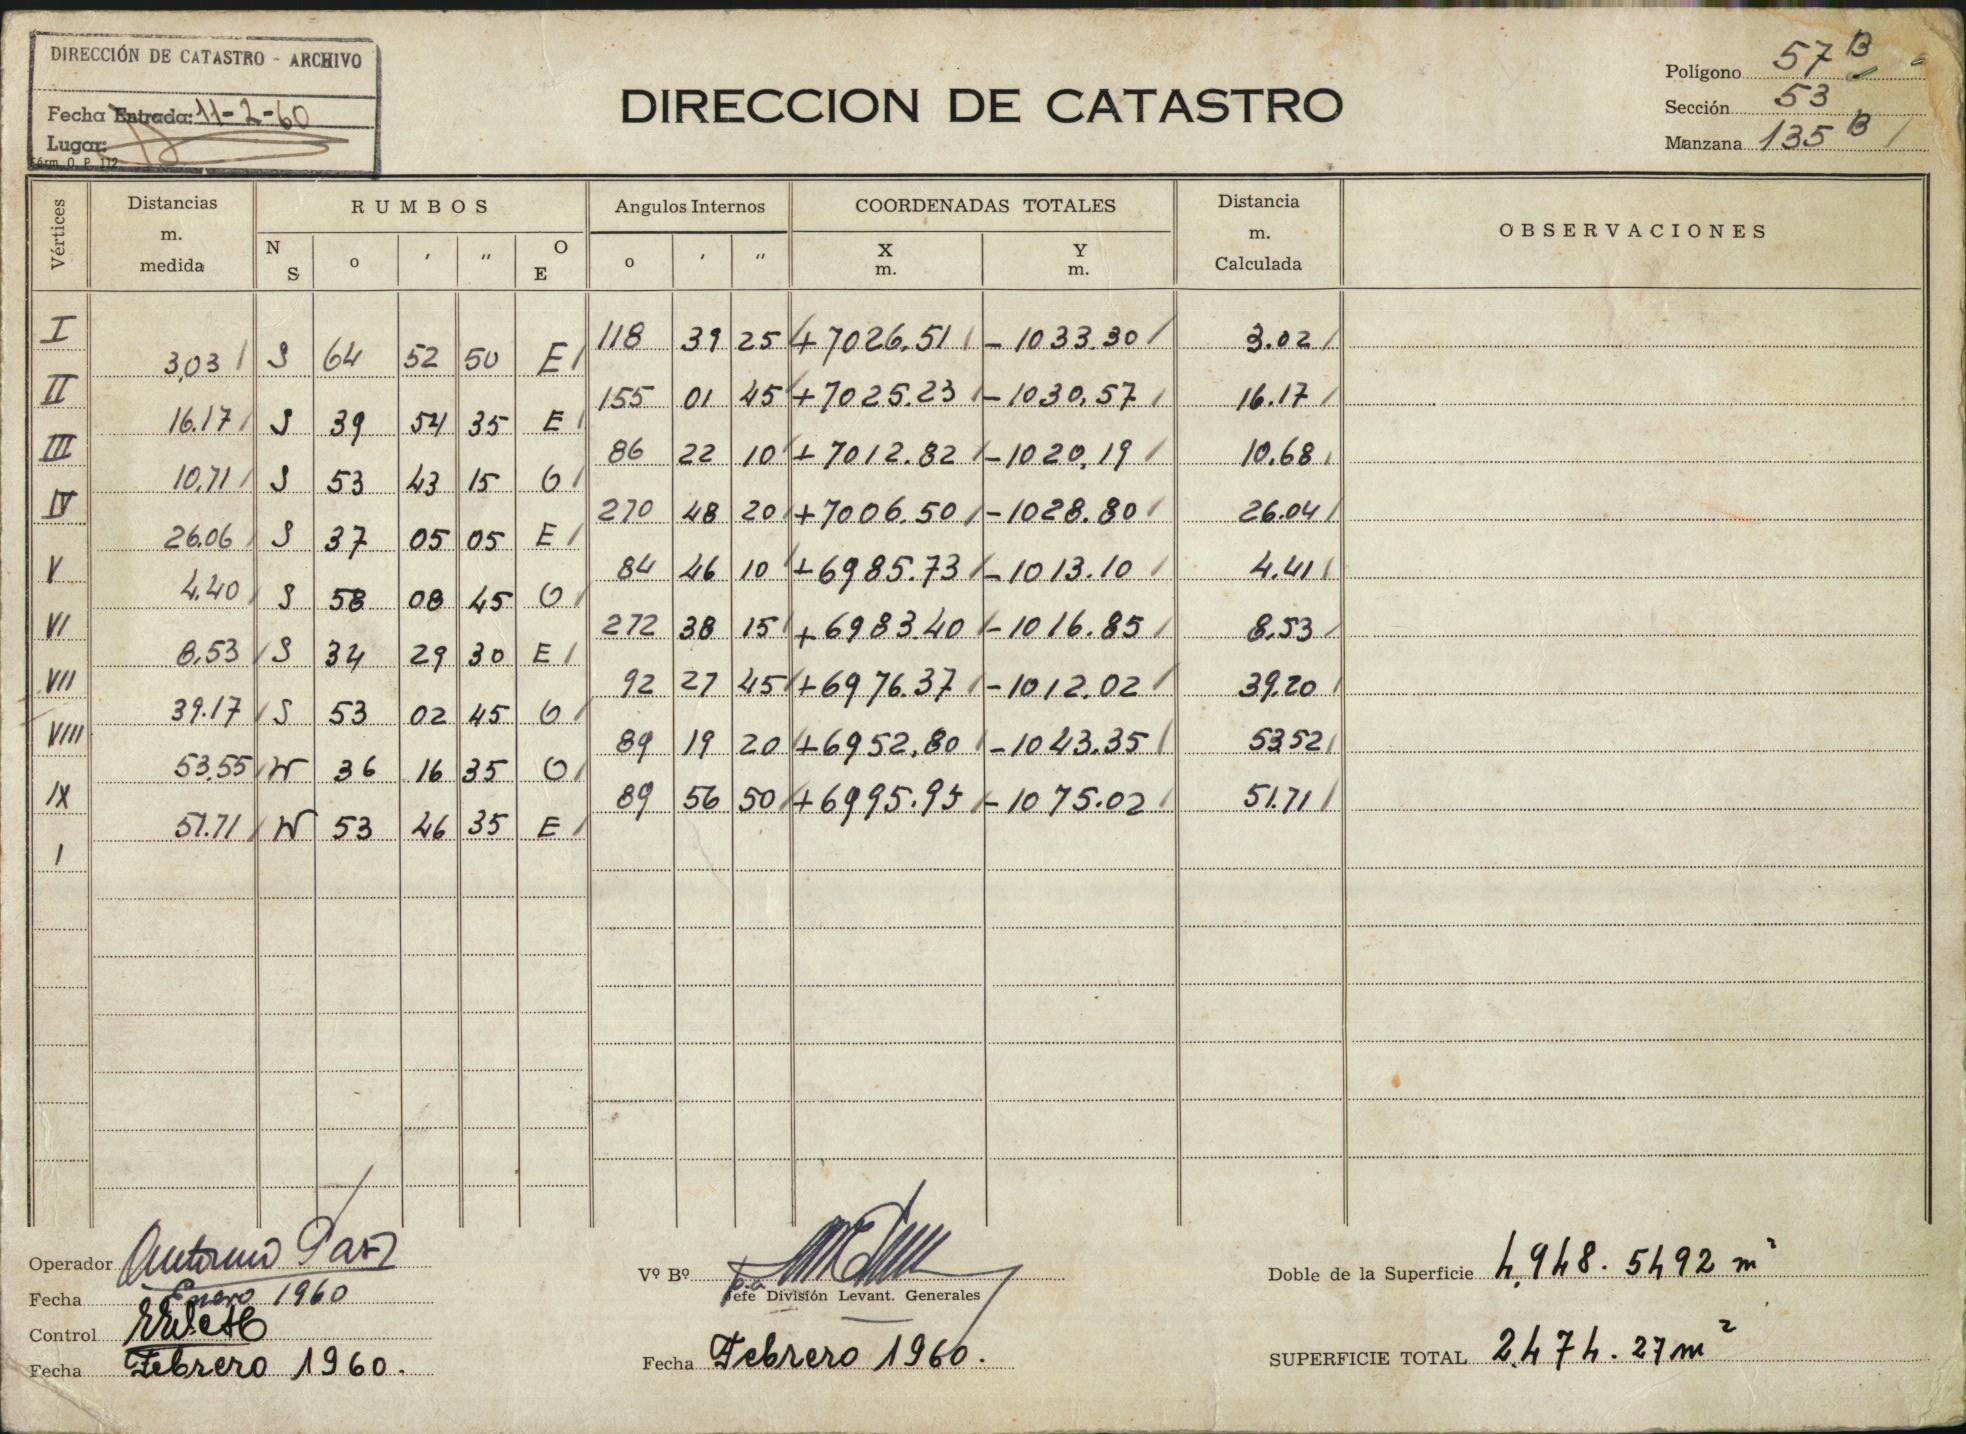 DIRECCIÓN DE CATASTRO - ARCHIVO
Fecha Entrada: 11-2-60
Lugar:
Fórm. O. P. 112
DIRECCION DE CATASTRO
Polígono 57 B
Sección 53
Manzana 135 B
Vértices Distancias m. medida RUMBOS Angulos Internos COORDENADAS TOTALES Distancia m. Calculada OBSERVACIONES
N S o ' " O E o ' " X m. Y m.
I 118 39 25 + 7026.51 - 1033.30 3.02
3,03 S 64 52 50 E
II 155 01 45 + 7025.23 - 1030.57 16.17
16.17 S 39 54 35 E
III 86 22 10 + 7012.82 - 1020.19 10.68
10.71 S 53 43 15 O
IV 270 48 20 + 7006.50 - 1028.80 26.04
26.06 S 37 05 05 E
V 84 46 10 + 6985.73 - 1013.10 4.41
4.40 S 58 08 45 O
VI 272 38 15 + 6983.40 - 1016.85 8.53
8.53 S 34 29 30 E
VII 92 27 45 + 6976.37 - 1012.02 39.20
39.17 S 53 02 45 O
VIII 89 19 20 + 6952.80 - 1043.35 53.52
53.55 N 36 16 35 O
IX 89 56 50 + 6995.95 - 1075.02 51.71
51.71 N 53 46 35 E
I
Operador Antonio Paz
Fecha Enero 1960
Control
Fecha Febrero 1960.
Vº Bº p.a
Jefe División Levant. Generales
Fecha Febrero 1960.
Doble de la Superficie 4,948.5492 m²
SUPERFICIE TOTAL 2,474.27 m²